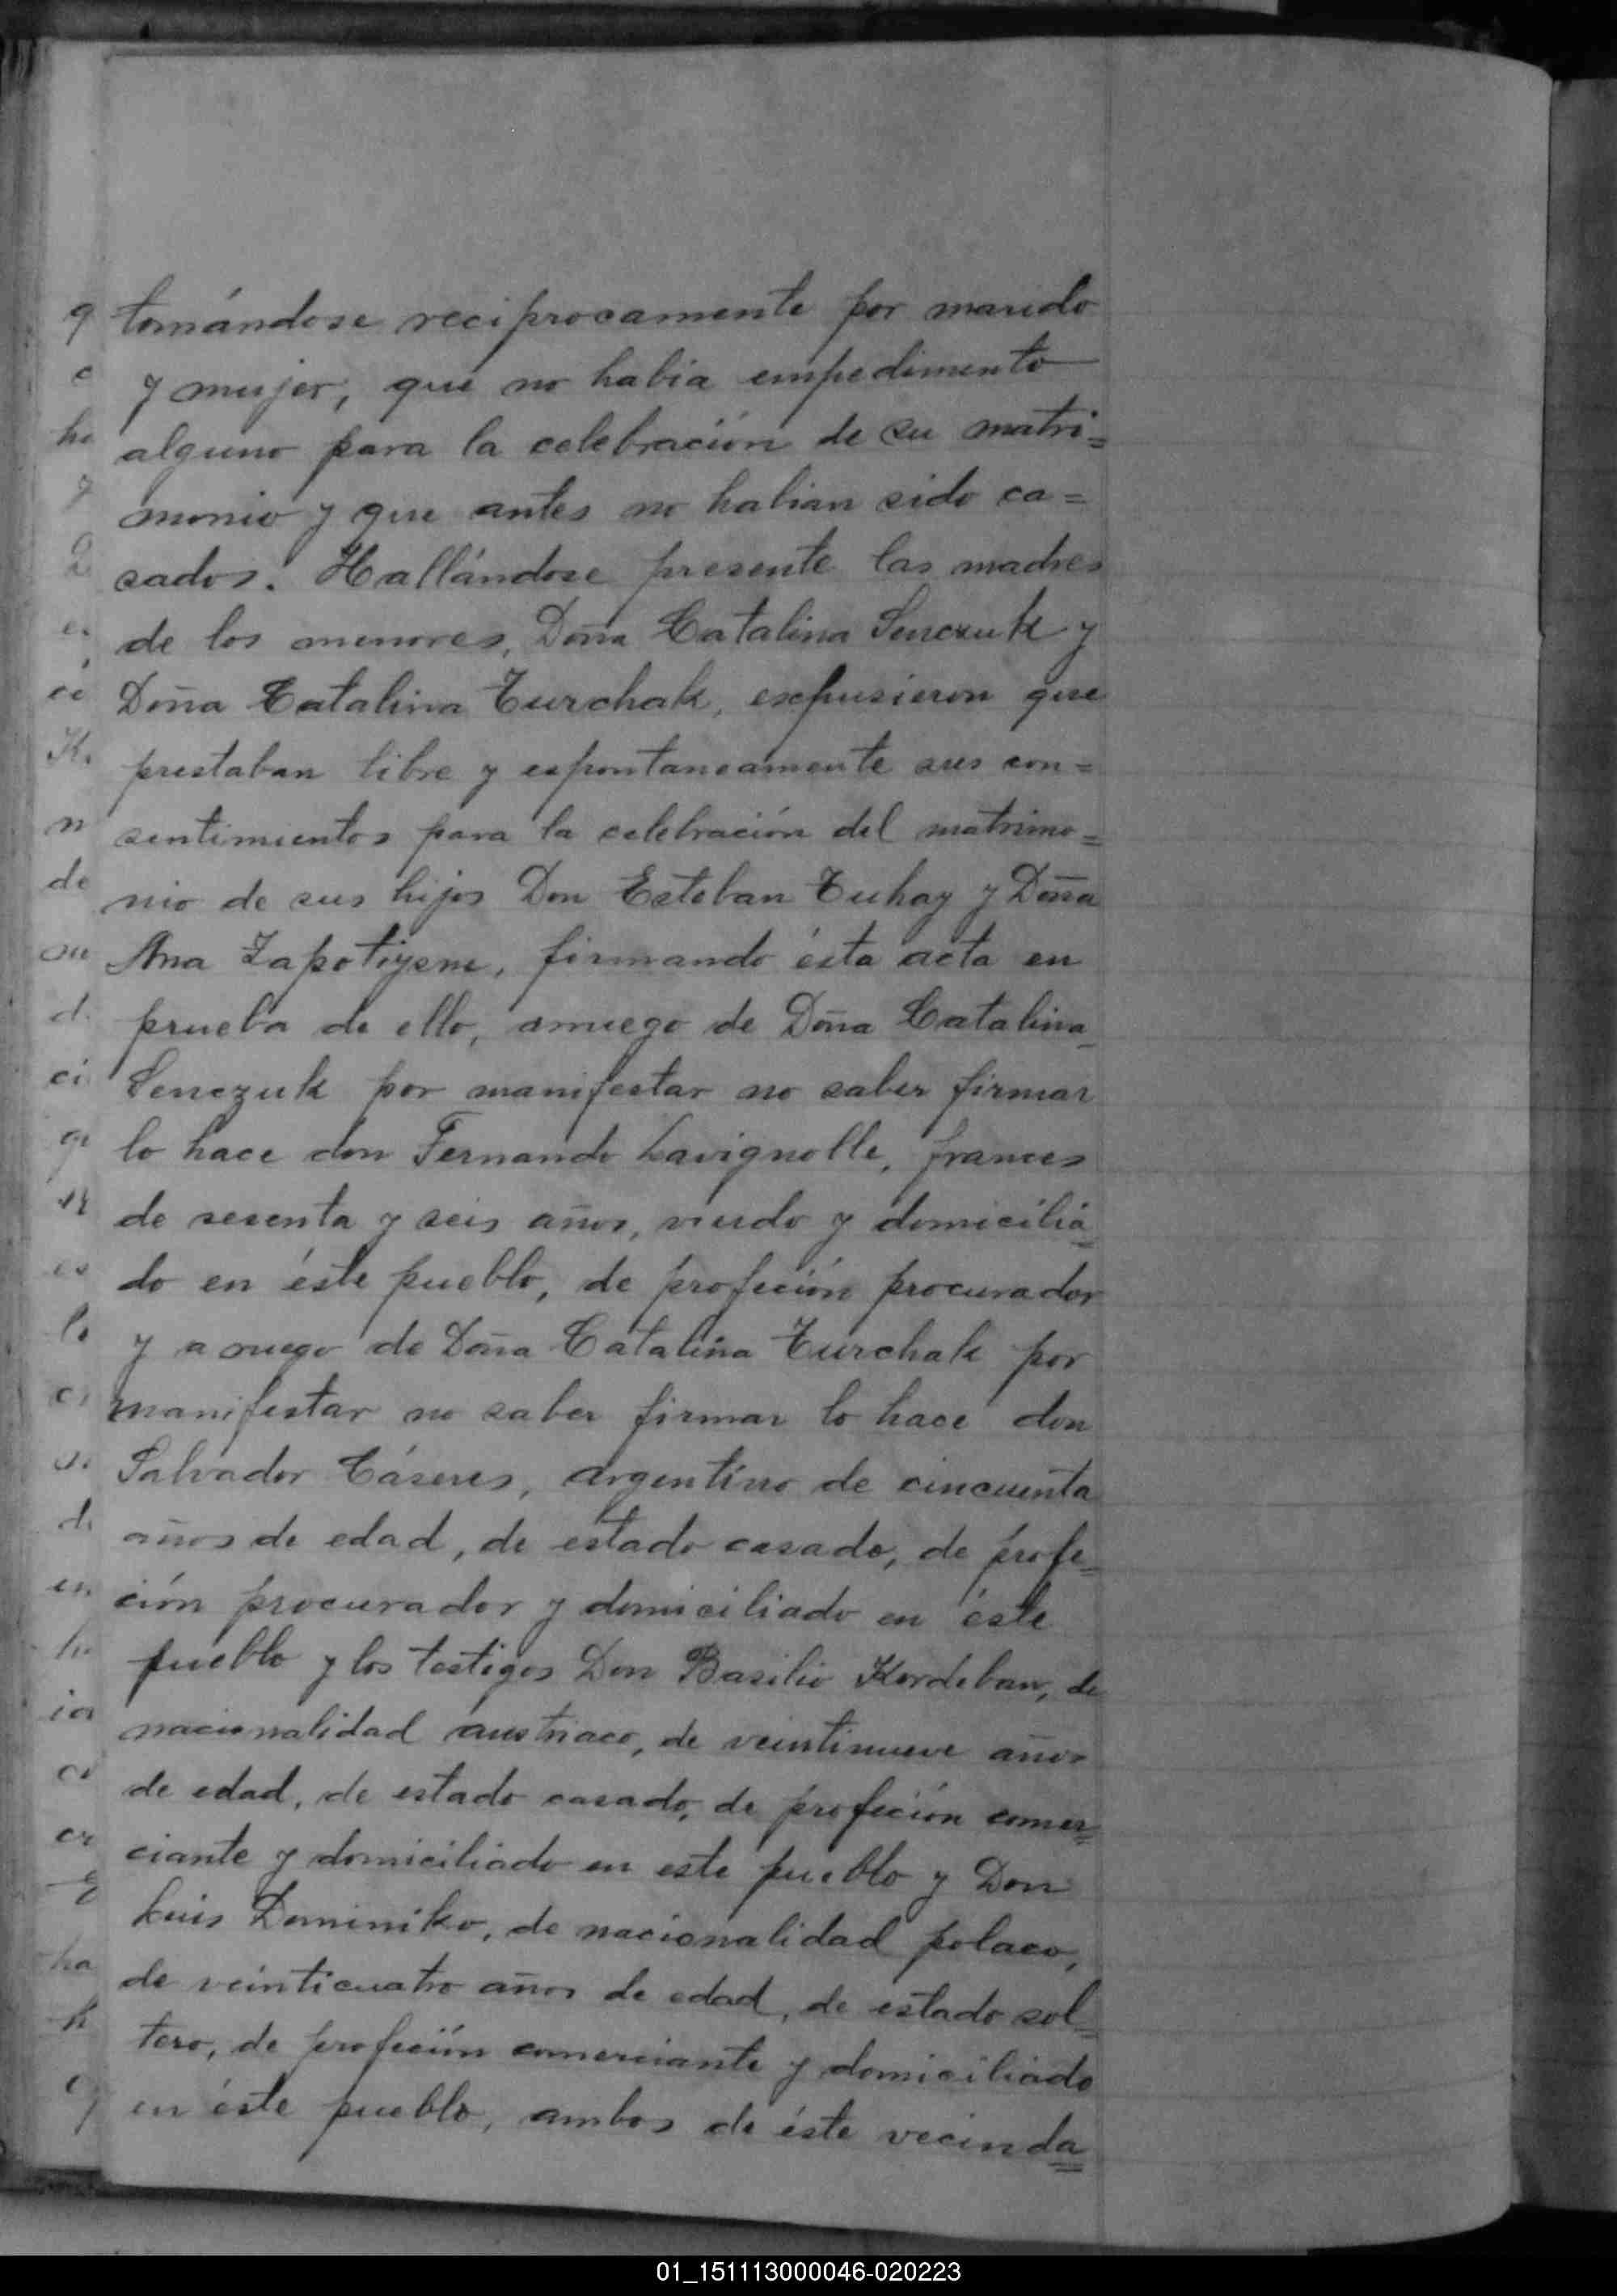 tomándose reciprocamente por marido
y mujer, que no habia empedimento
alguno para la celebración de su matri=
monio y que antes no habian sido ca=
sados. Hallándose presente las madres
de los menores, Doña Catalina Senczuk y
Doña Catalina Turchak, expusieron que
prestaban libre y espontaneamente sus con=
sentimientos para la celebración del matrimo=
nio de sus hijos Don Esteban Tuhay y Doña
Ana, firmando ésta acta en
prueba de ello, aruego de Doña Catalina
Senczuk por manifestar no saber firmar
lo hace don Fernando Lavignolle, frances
de sesenta y seis años, viudo y domicilia=
do en éste pueblo, de profeción procurador
y a ruego de Doña Catalina Turchak por
manifestar no saber firmar lo hace don
Salvador Cáseres, argentino de cincuenta
años de edad, de estado casado, de profe=
ción procurador y domiciliado en éste
pueblo y los testigos Don Basilio Kordeban, de
nacionalidad austriaco, de veintinueve años
de edad, de estado casado, de profeción comer=
ciante y domiciliado en este pueblo y Don
Luis Dominiko, de nacionalidad polaco,
de veinticuatro años de edad, de estado sol=
tero, de profeción comerciante y domiciliado
en éste pueblo, ambos de éste vecinda=
01_151113000046-020223